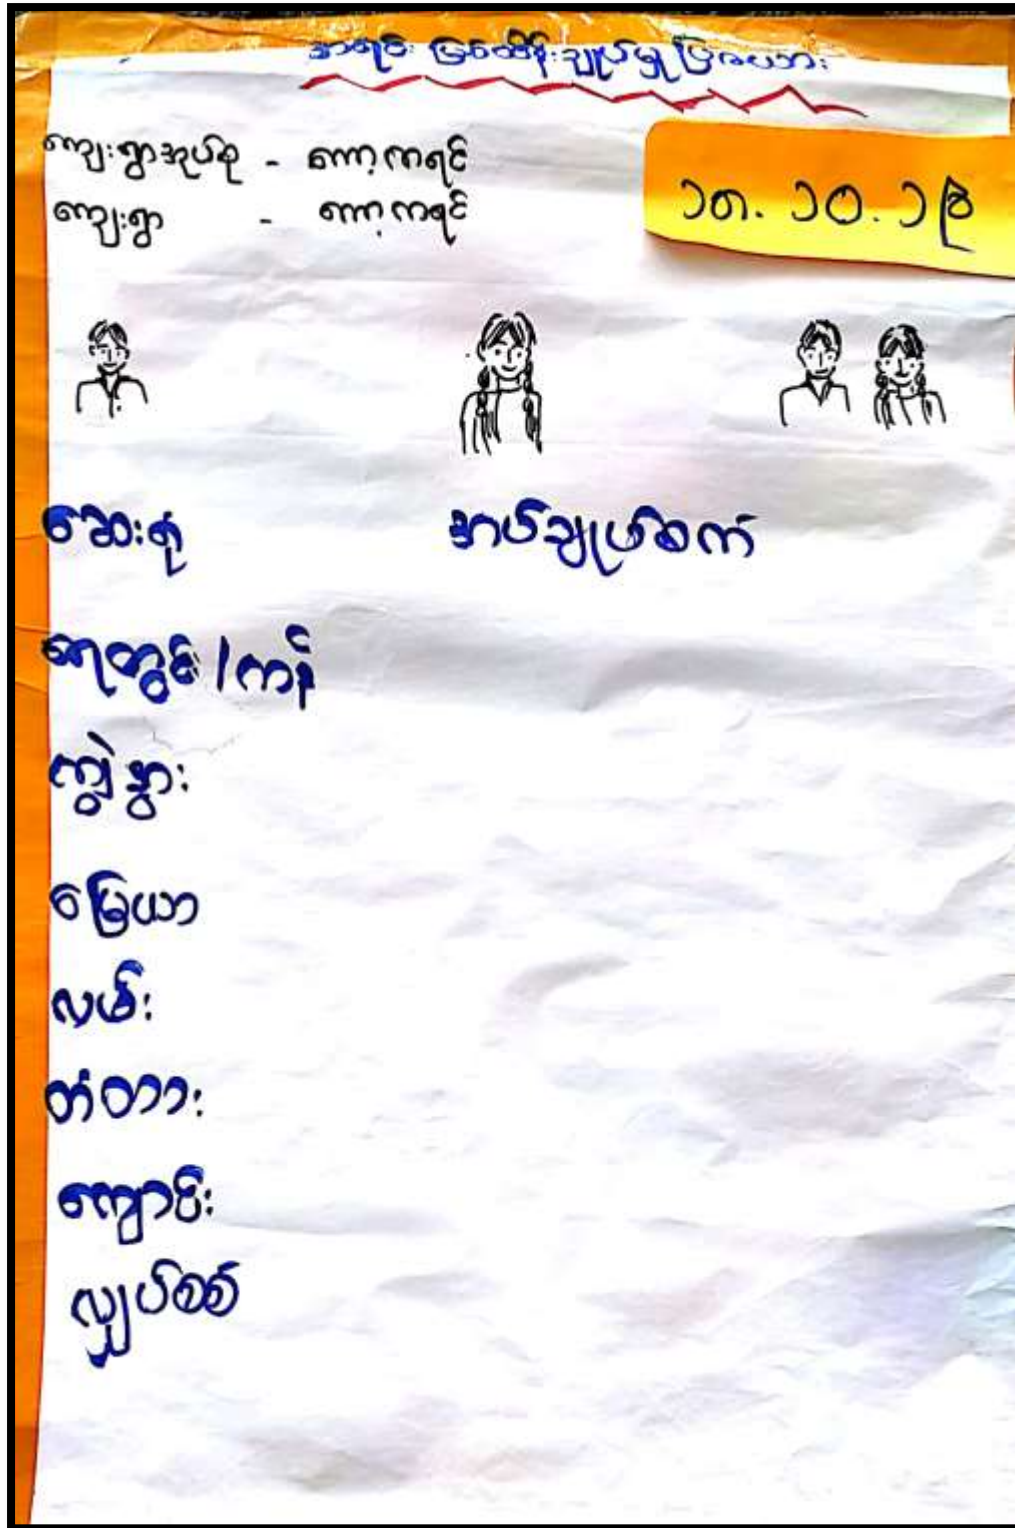 အရင်းအမြစ်ထိန်းချုပ်မှု ပြဇယား
ကျေးရွာအုပ်စု - ကော့ကရင်
ကျေးရွာ - ကော့ကရင်
၁၈. ၁၀. ၁၉
ဆေးရုံ အုပ်ချုပ်စက်
ရေတွင်း/ကန်
ကျွဲနွား
မြေယာ
လမ်း
တံတား
ကျောင်း
လျှပ်စစ်